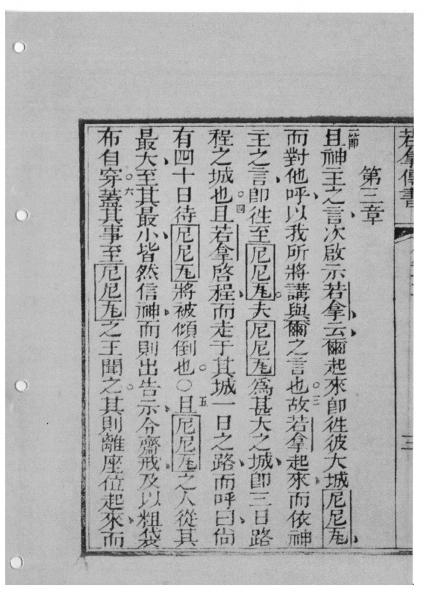 若拿傳書
三
第三章
二節
且神主之言次啟示若拿云爾起來即徃彼大城尼尼瓦
而對他呼以我所將講與爾之言也○三故若拿起來而依神
主之言即徃至尼尼瓦夫尼尼瓦為甚大之城即三日路
程之城也○四且若拿啓程而走于其城一日之路而呼曰尙
有四十日待尼尼瓦將被傾倒也○五且尼尼瓦之人從其
最大至其最小皆然信神而則出告示令齋戒及以粗袋
布自穿○六蓋其事至尼尼瓦之王聞之其則離座位起來而